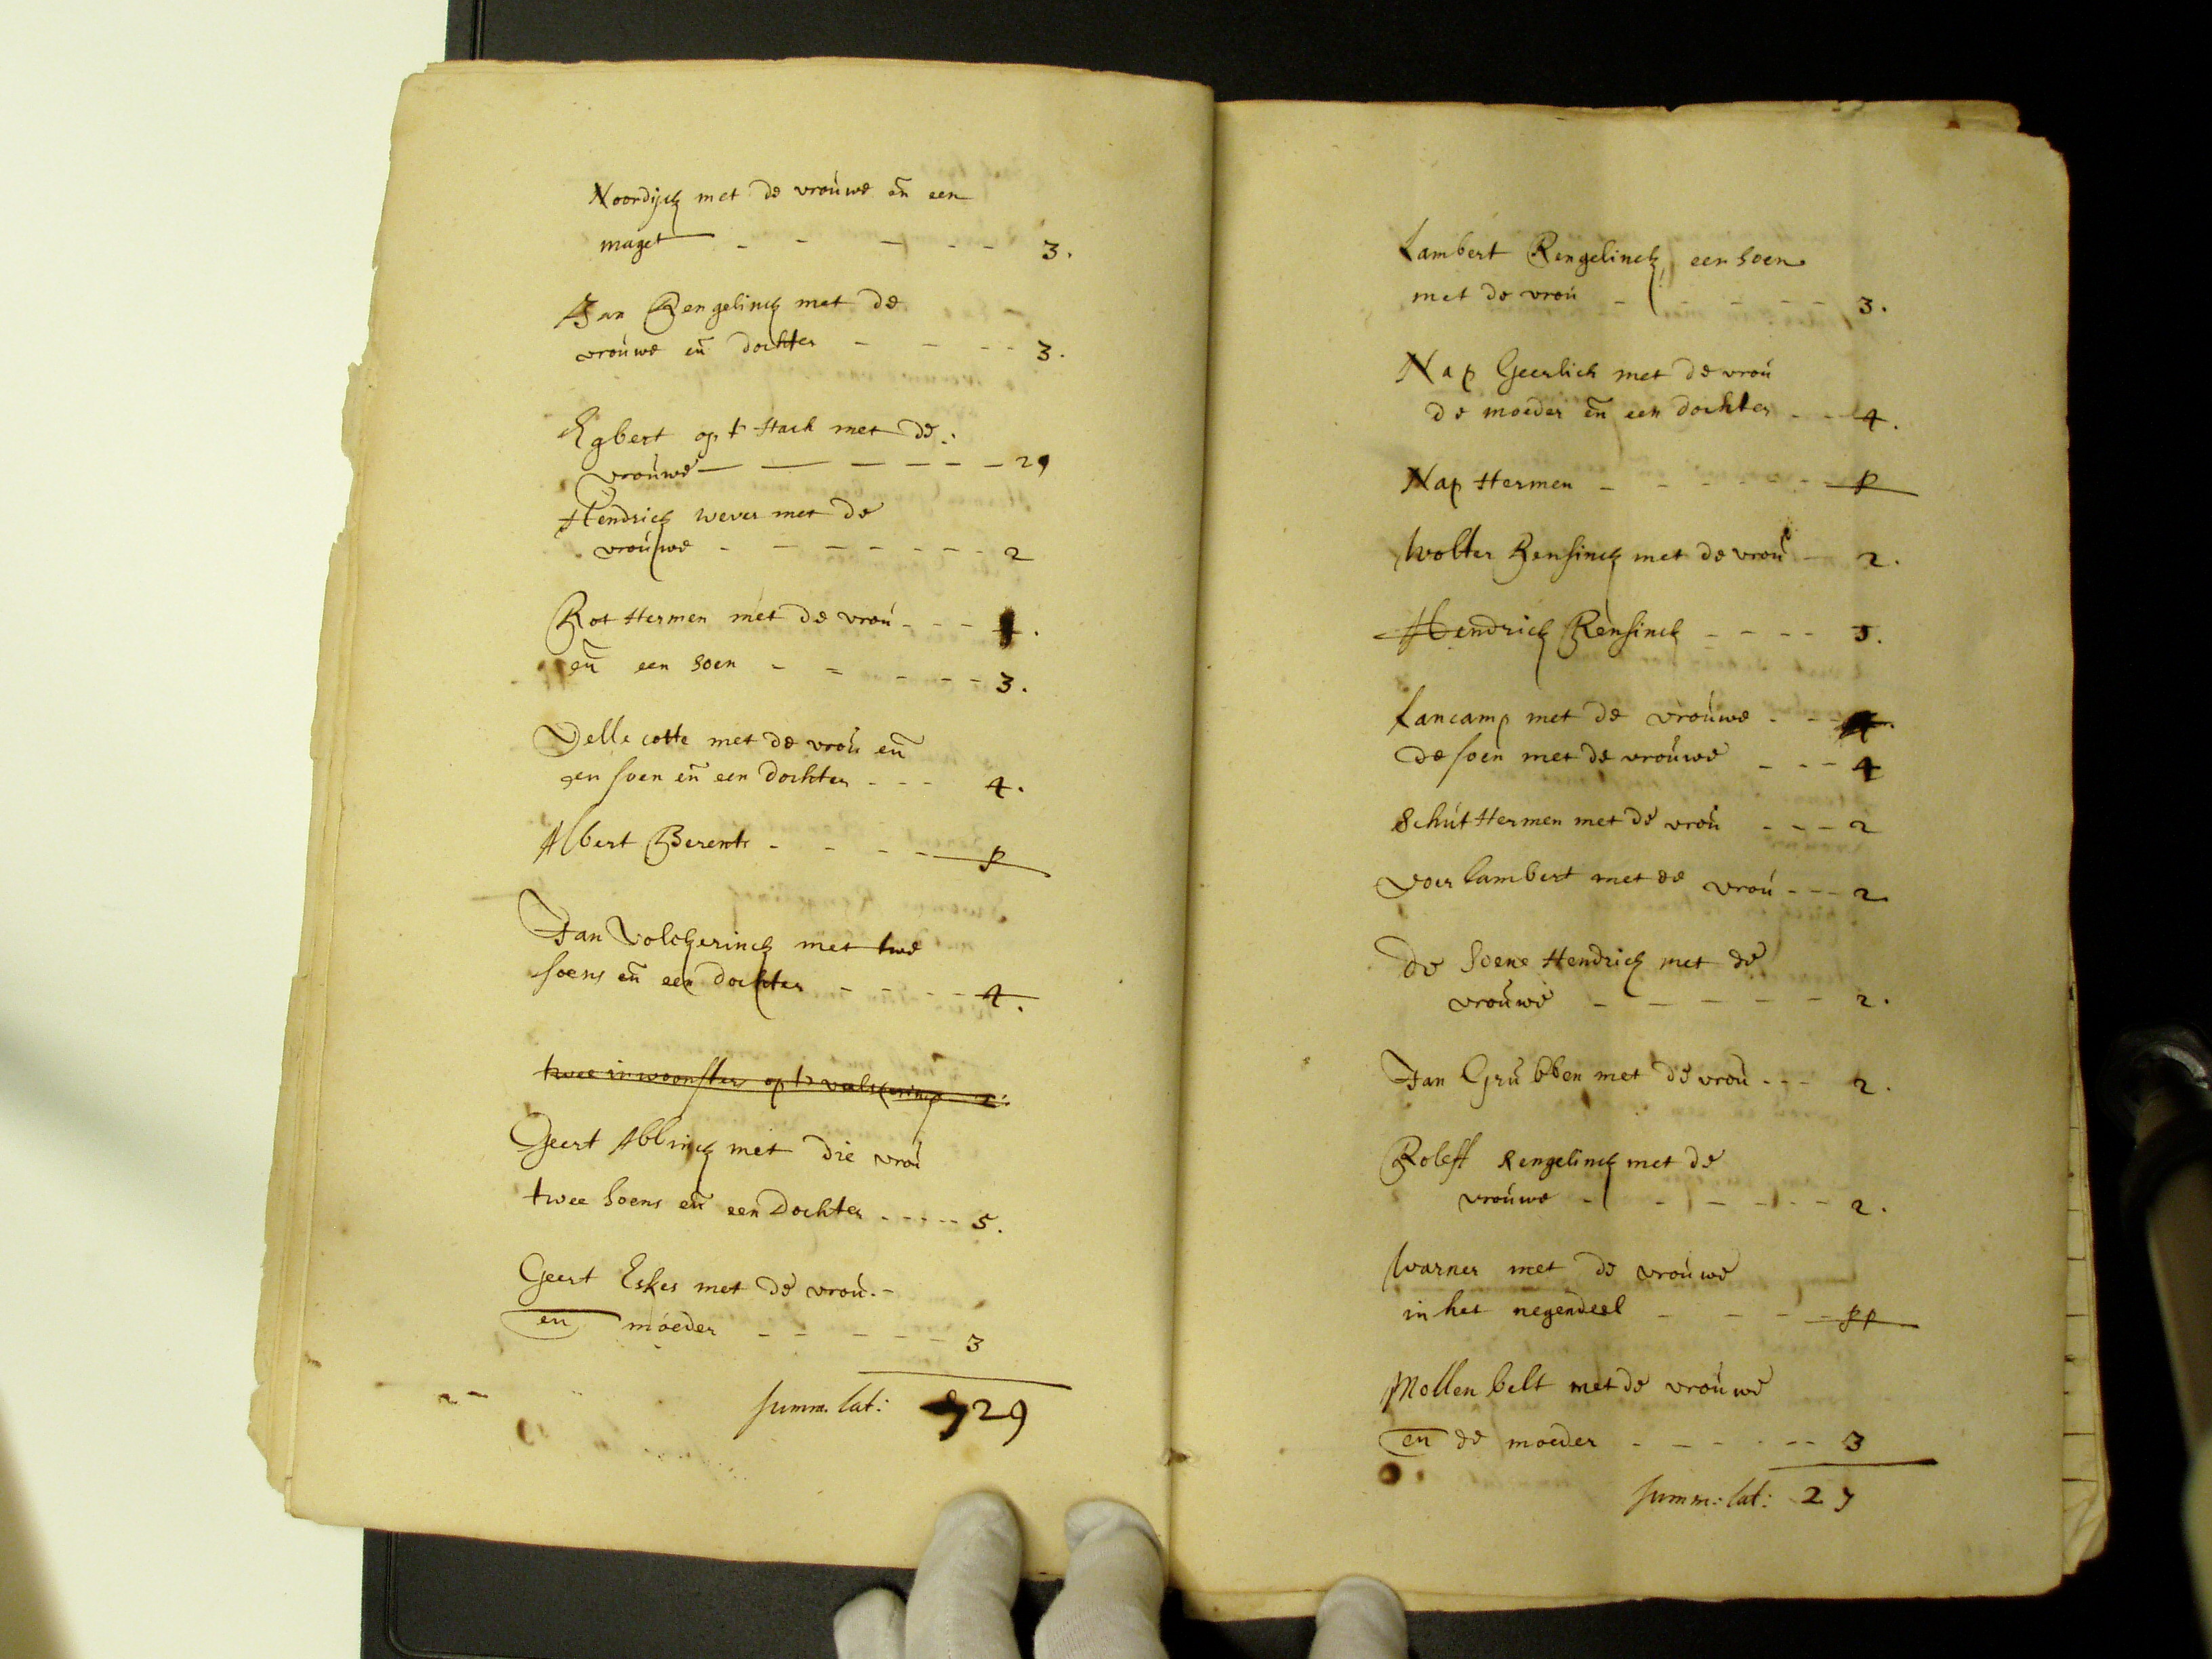 Noordijck met de vrouwe en̄ een
maget - - - - - 3.
Jan Rengelinck met de
vrouwe en̄ dochter - - - - 3.
Egbert op t Stach met de
vrouwe - - - - - - 2
Hendrick wever met de
vrouwe - - - - - - 2
Rot Hermen met de vrou - - -
en̄ een soen - - - - - 3.
Delle cotte met de vrou en̄
een soen en̄ een dochter - - - 4.
Albert Berents - - - - p
Jan Volckerinck met twe
soens en̄ een dochter - - - - 4.
twee inwoonsters op
Geert Abbinck met die vrou
twee soens en̄ een dochter - - - - - 5.
Geert Eskes met de vrou -
en moeder - - - - - 3
summ. lat: 29
Lambert Rengelinck een soen
met de vrou - - - - - 3.
Nap Geerlich met de vrou
de moeder en̄ een dochter - - 4.
Nap Hermen - - - - - p
Wolter Rensinck met de vrou - 2.
Hendrick Rensinck - - - -
Lancamp met de vrouwe - - -
de soen met de vrouwe - - - 4
Schut Hermen met de vrou - - - 2
Voer lambert met de vrou - - - 2
De Soene Hendrick met de
vrouwe - - - - - 2.
Jan Grubben met de vrou - - - 2.
Roleff Rengelinck met de
vrouwe - - - - - - 2.
Warner met de vrouwe
in het negendeel - - - - pp
Mollen belt met de vrouwe
en de moeder - - - - - - 3
summ: lat: 27